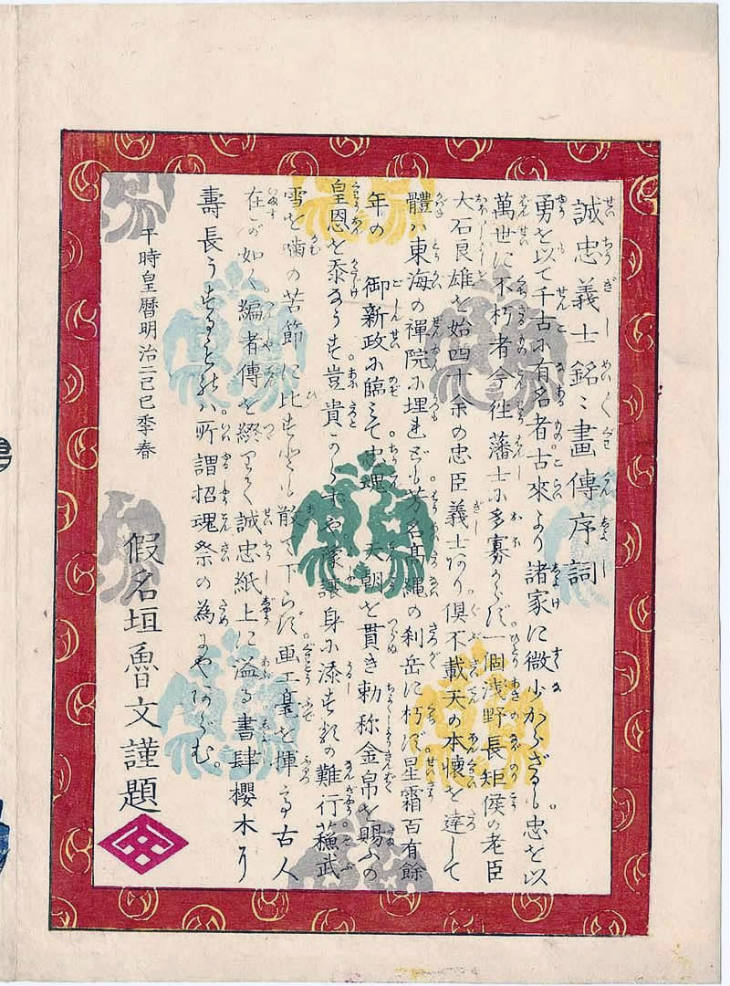 誠忠義士銘〻畫傳序詞
勇を以て千古に有名者古來より諸家に微少からざるし忠を以
萬世に不朽者今往藩士に多寡からず一個浅野長矩侯の老臣
大石良雄を始四十余の忠臣義士あり倶不載天の本懐を達して
體ハ東海の禪院に埋れども芳名髙縄の利岳に朽ず星霜百有餘
年の 御新政に臨ミて忠魂 天朝を貫き勅称金帛を賜ふの
皇恩を忝なうす豈貴からずや豫譲身に漆するの難行蘓武
雪を噛の苦節に比すとも散て下らず画工皇を揮て古人
在すが如く編者傳を終りて誠忠紙上に溢る書肆櫻木に
壽長うするものハ所謂招魂祭の為にやあらむ。
干時皇暦明治二己巳季春
假名垣魯文謹題